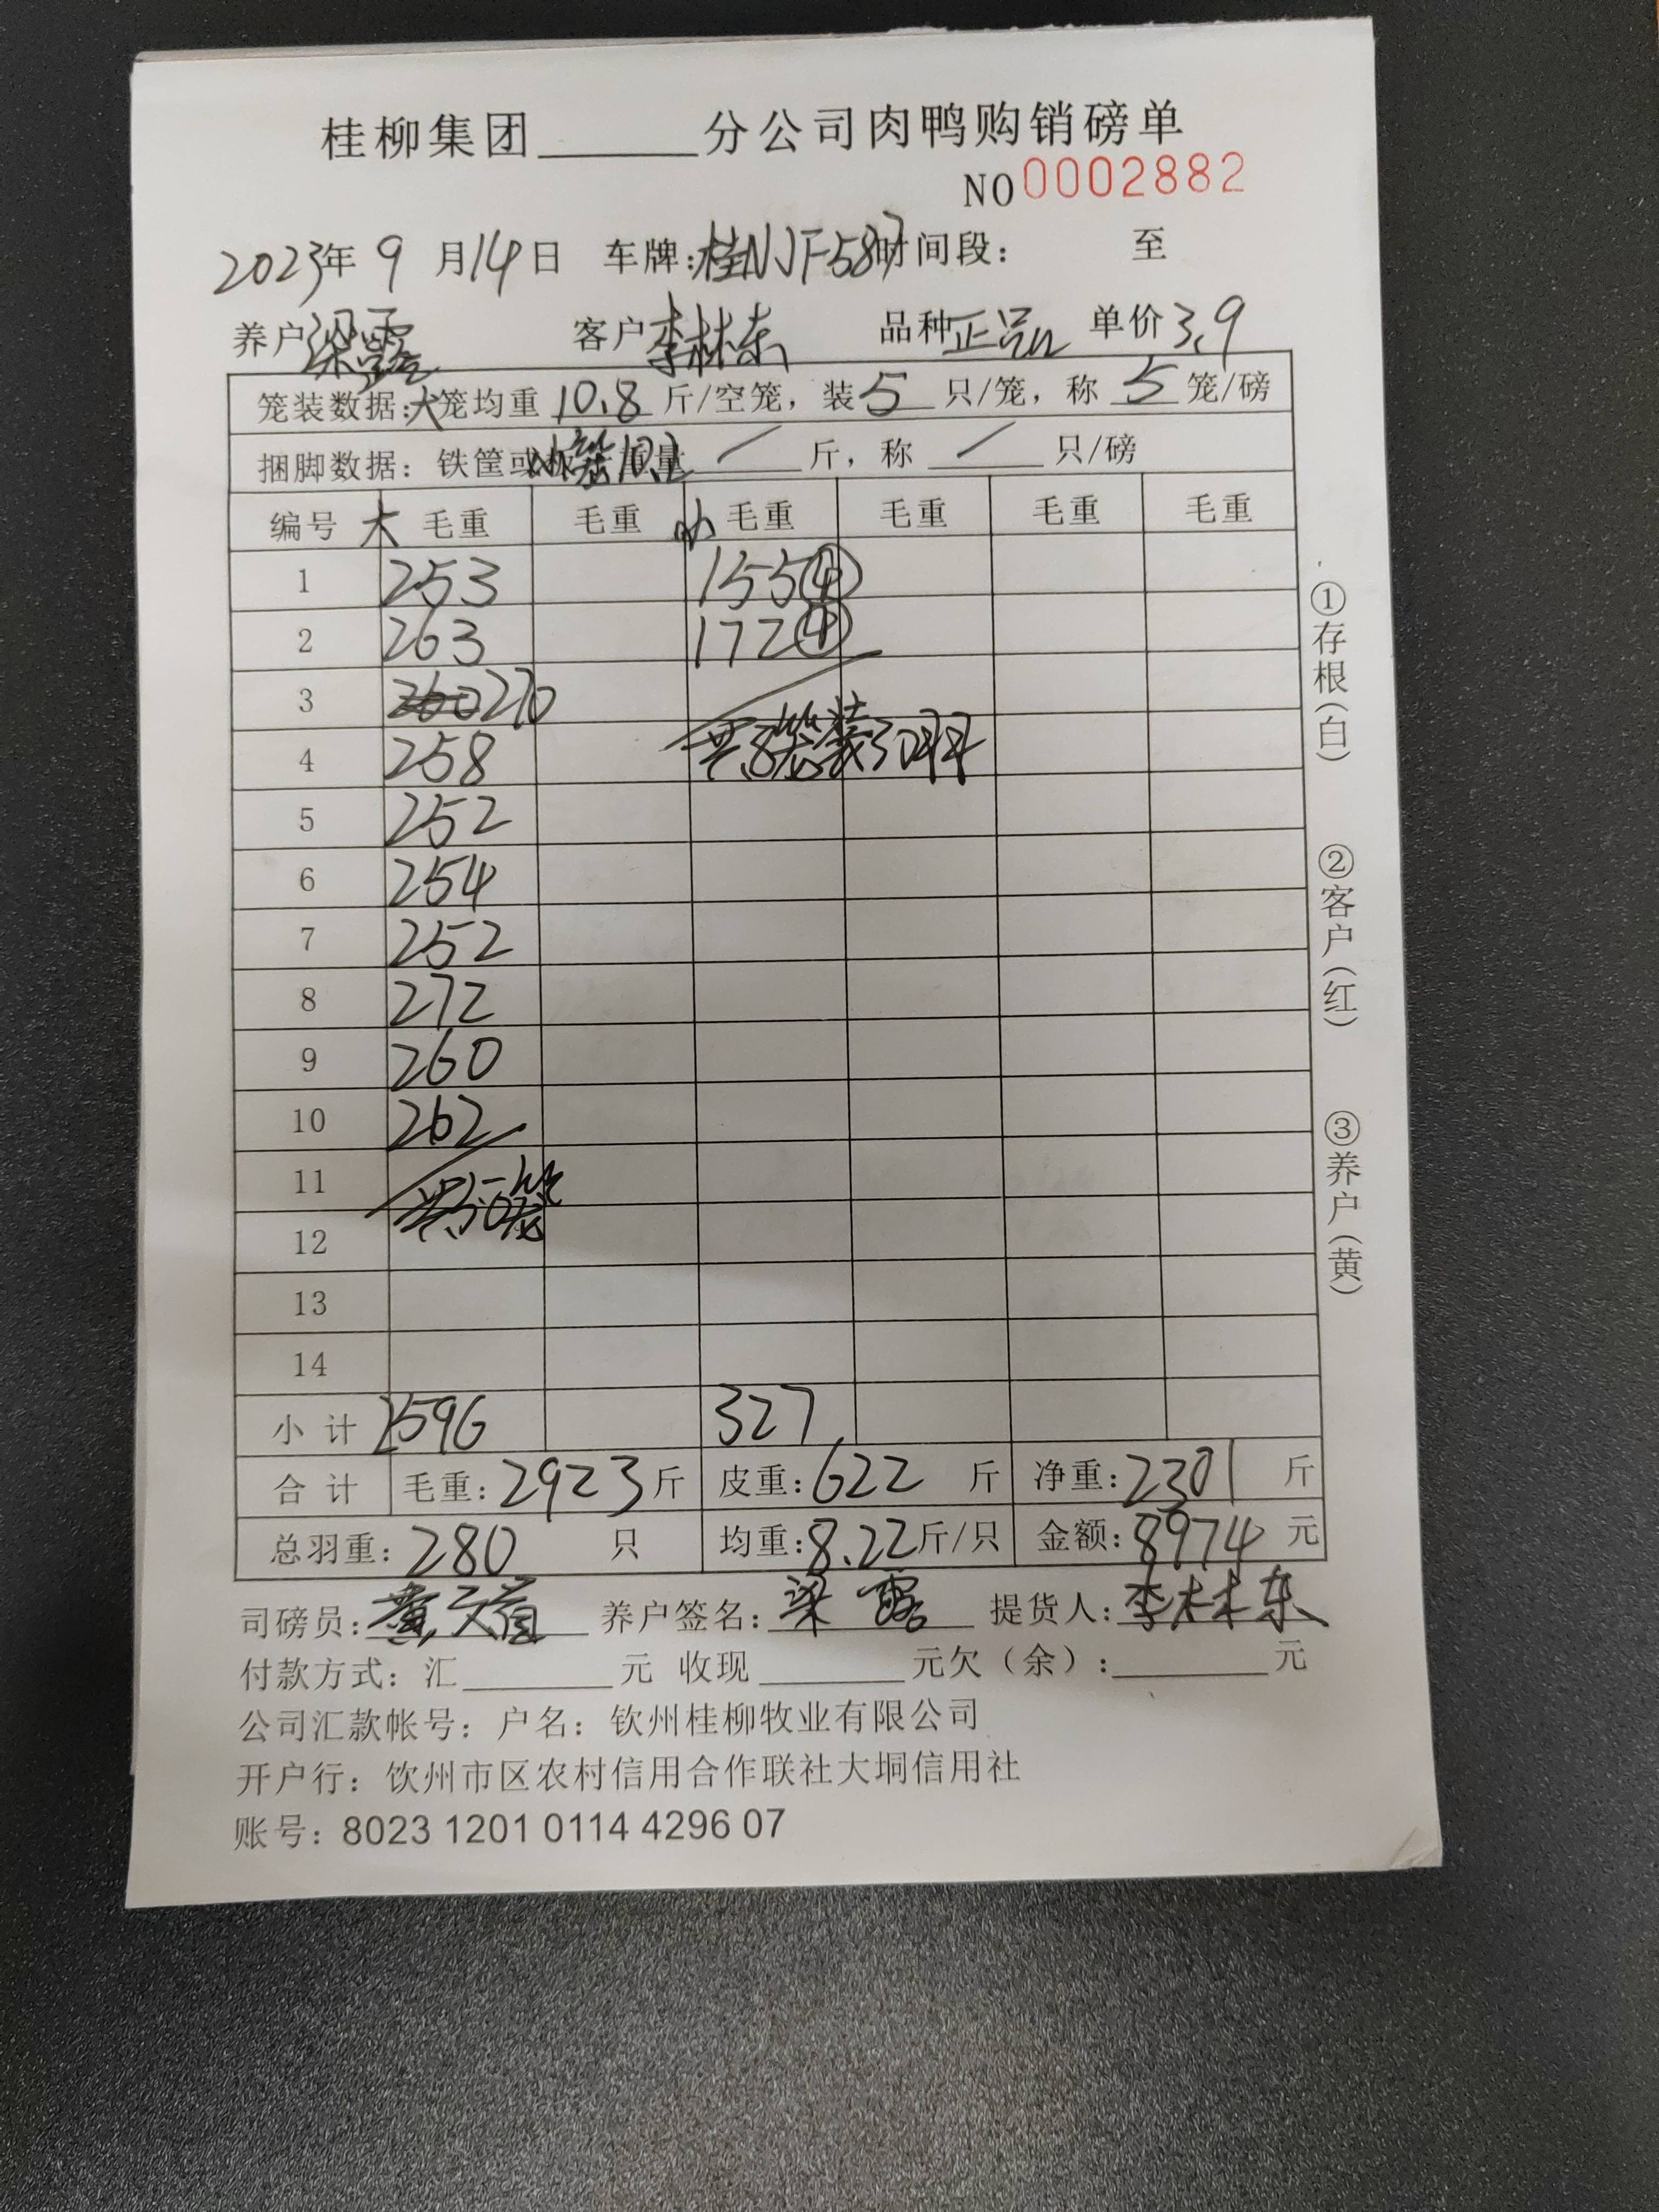 桂柳集团______分公司肉鸭购销磅单
NO 0002882
2023年 9 月 14 日 车牌:桂NJF587 时间段: 至
养户 梁露 客户 李林东 品种 正品 单价 3.9
笼装数据:大笼均重 10.8 斤/空笼，装 5 只/笼，称 5 笼/磅
捆脚数据：铁筐或 小笼10.2 重量 / 斤，称 / 只/磅
编号 大 毛重 毛重 小 毛重 毛重 毛重 毛重
1 253 155④
2 263 172④
3 260 270
4 258 共8笼装30羽
5 252
6 254
7 252
8 272
9 260
10 262
11 共50笼
12
13
14
小计 2596 327
合计 毛重：2923 斤 皮重：622 斤 净重：2301 斤
总羽重：280 只 均重：8.22 斤/只 金额：8974 元
司磅员： 养户签名：梁露 提货人：李林东
付款方式：汇______元 收现______元欠（余）:______元
公司汇款帐号：户名：钦州桂柳牧业有限公司
开户行：饮州市区农村信用合作联社大垌信用社
账号：8023 1201 0114 4296 07
①存根(白)
②客户(红)
③养户(黄)